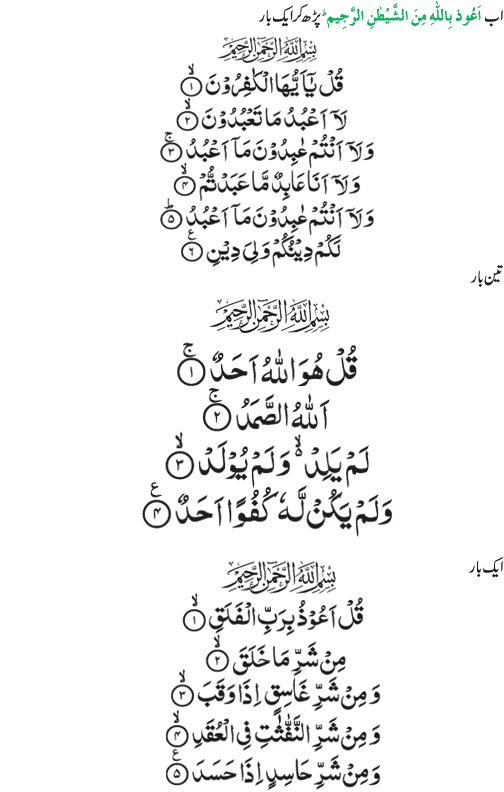 اب اَعُوذُ بِاللّٰهِ مِنَ الشَّیْطٰنِ الرَّجِیْمِؕ پڑھ کر ایک بار
بِسْمِ اللّٰهِ الرَّحْمٰنِ الرَّحِیْمِ
قُلْ یٰۤاَیُّهَا الْكٰفِرُوْنَۙ ۱
لَاۤ اَعْبُدُ مَا تَعْبُدُوْنَۙ ۲
وَ لَاۤ اَنْتُمْ عٰبِدُوْنَ مَاۤ اَعْبُدُۚ ۳
وَ لَاۤ اَنَا عَابِدٌ مَّا عَبَدْتُّمْۙ ۴
وَ لَاۤ اَنْتُمْ عٰبِدُوْنَ مَاۤ اَعْبُدُؕ ۵
لَكُمْ دِیْنُكُمْ وَلِیَ دِیْنِ۠ ۶
تین بار
بِسْمِ اللّٰهِ الرَّحْمٰنِ الرَّحِیْمِ
قُلْ هُوَ اللّٰهُ اَحَدٌۚ ۱
اَللّٰهُ الصَّمَدُۚ ۲
لَمْ یَلِدْ ۙ وَ لَمْ یُوْلَدْۙ ۳
وَ لَمْ یَكُنْ لَّهٗ كُفُوًا اَحَدٌ۠ ۴
ایک بار
بِسْمِ اللّٰهِ الرَّحْمٰنِ الرَّحِیْمِ
قُلْ اَعُوْذُ بِرَبِّ الْفَلَقِۙ ۱
مِنْ شَرِّ مَا خَلَقَۙ ۲
وَ مِنْ شَرِّ غَاسِقٍ اِذَا وَقَبَۙ ۳
وَ مِنْ شَرِّ النَّفّٰثٰتِ فِی الْعُقَدِۙ ۴
وَ مِنْ شَرِّ حَاسِدٍ اِذَا حَسَدَ۠ ۵